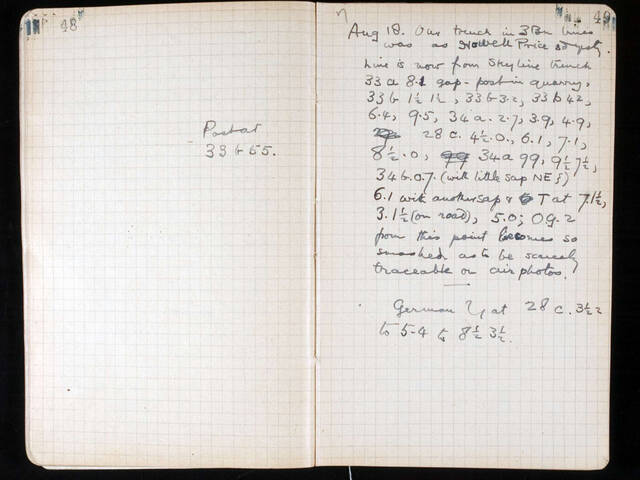 48
Post at
33 b 55.
49
Aug 18. Our trench in 3 Bn lines
was as Howell Price sd yesty.
Line is now from Skyline trench
33 a 8.1 gap - post in quarry,
33 b 1½ 1½, 33 b 3.2, 33 b 42,
6.4, 9.5, 34 a. 2.7, 3.9, 4.9,
28 c. 4½.0., 6.1, 7.1,
8½.0, 34 a 99, 9½ 7½,
34 b.0.7. (with little sap NE)
6.1 with another sap & T at 7.1½,
3.1½ (on road), 5.0; 09.2
from this point becomes so
smashed as to be scarcely
traceable on air photos.
German at 28 c. 3½ 2
to 5.4 to 8½ 3½.